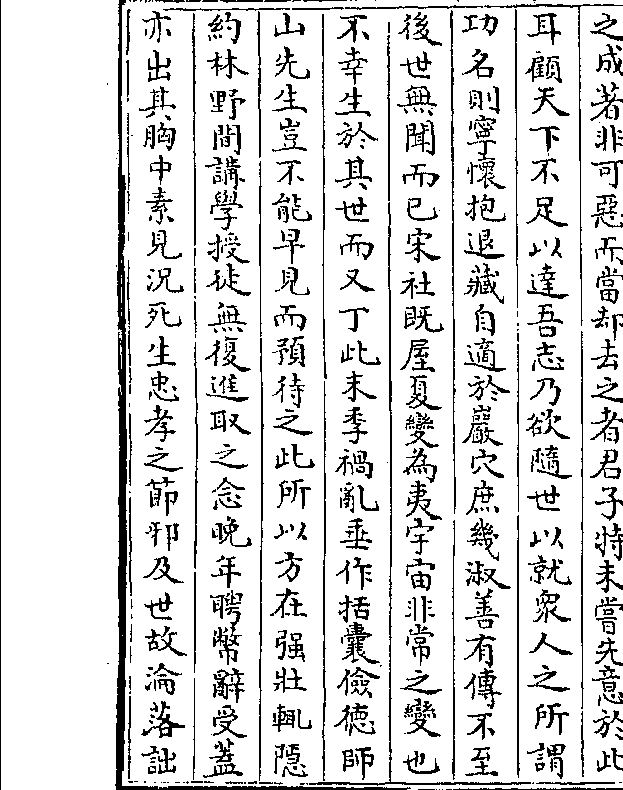 之成著非可惡而當却去之者君子特未嘗先意於此
耳顧天下不足以達吾志乃欲隨世以就衆人之所謂
功名則寧懷抱退藏自適於巖穴庶幾淑善有傳不至
後世無聞而已宋社既屋夏變為夷宇宙非常之變也
不幸生於其世而又丁此末季禍亂垂作括囊儉德師
山先生豈不能早見而預待之此所以方在强壯輒隱
約林野間講學授徒無復進取之念晚年聘幣辭受蓋
亦出其胸中素見況死生忠孝之節邪及世故淪落詘